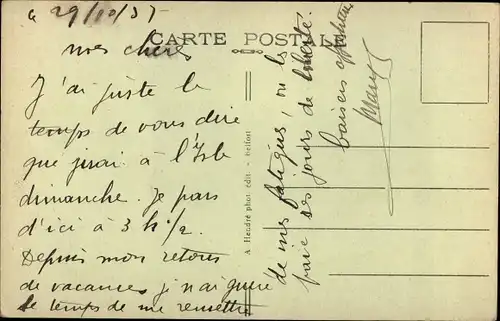 le 29/10/37
CARTE POSTALE
mes chères
J'ai juste le
temps de vous dire
que j'irai à l'Isle
dimanche. Je pars
d'ici à 3 h 1/2
Depuis mon retour
de vacances je n'ai guère
le temps de me remettre
de mes fatigues, ou le
faire ses jours de liberté.
baisers affectueux
A Hendré phot. édit. - Belfort